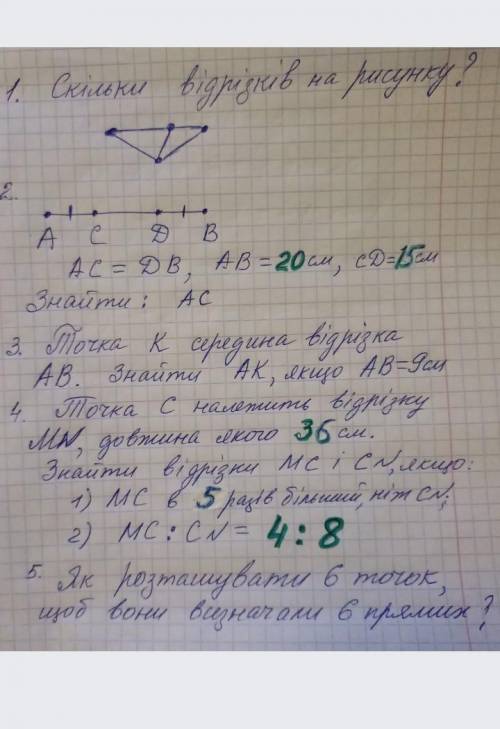 1. Скільки відрізків на рисунку?
2.
A C D B
AC = DB, AB = 20 см, CD = 15 см
Знайти: AC
3. Точка К середина відрізка
AB. Знайти AK, якщо AB = 9 см
4. Точка С належить відрізку
MN, довжина якого 36 см.
Знайти відрізки MC і CN, якщо:
1) MC в 5 разів більший, ніж CN;
2) MC : CN = 4 : 8
5. Як розташувати 6 точок,
щоб вони визначали 6 прямих?